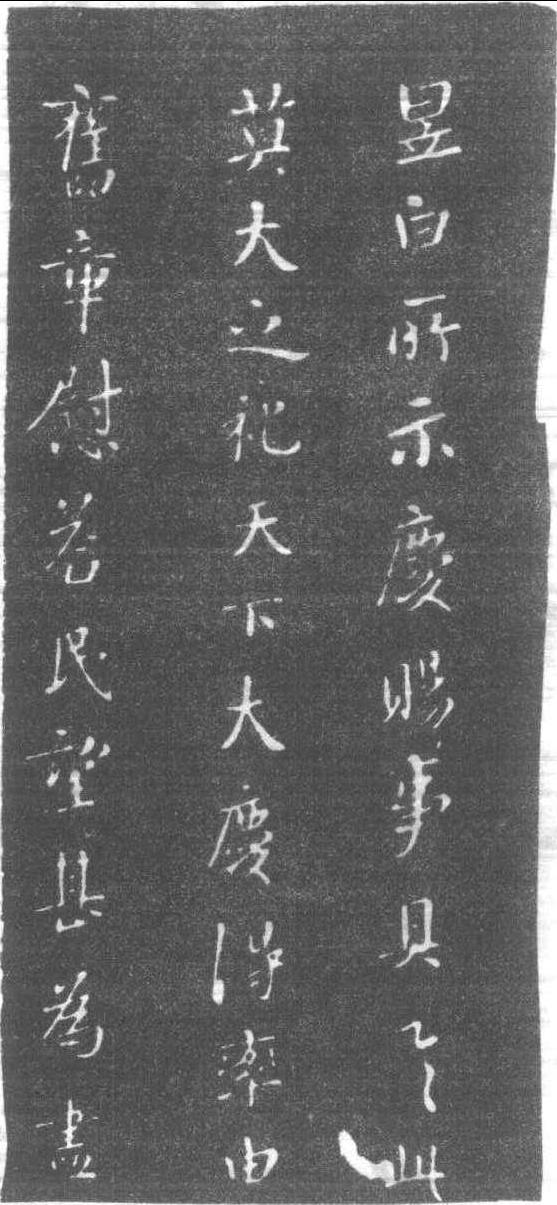 昱白所示慶賜事具之此
莫大之礼天下大慶得率由
舊章慰若民望甚為盡